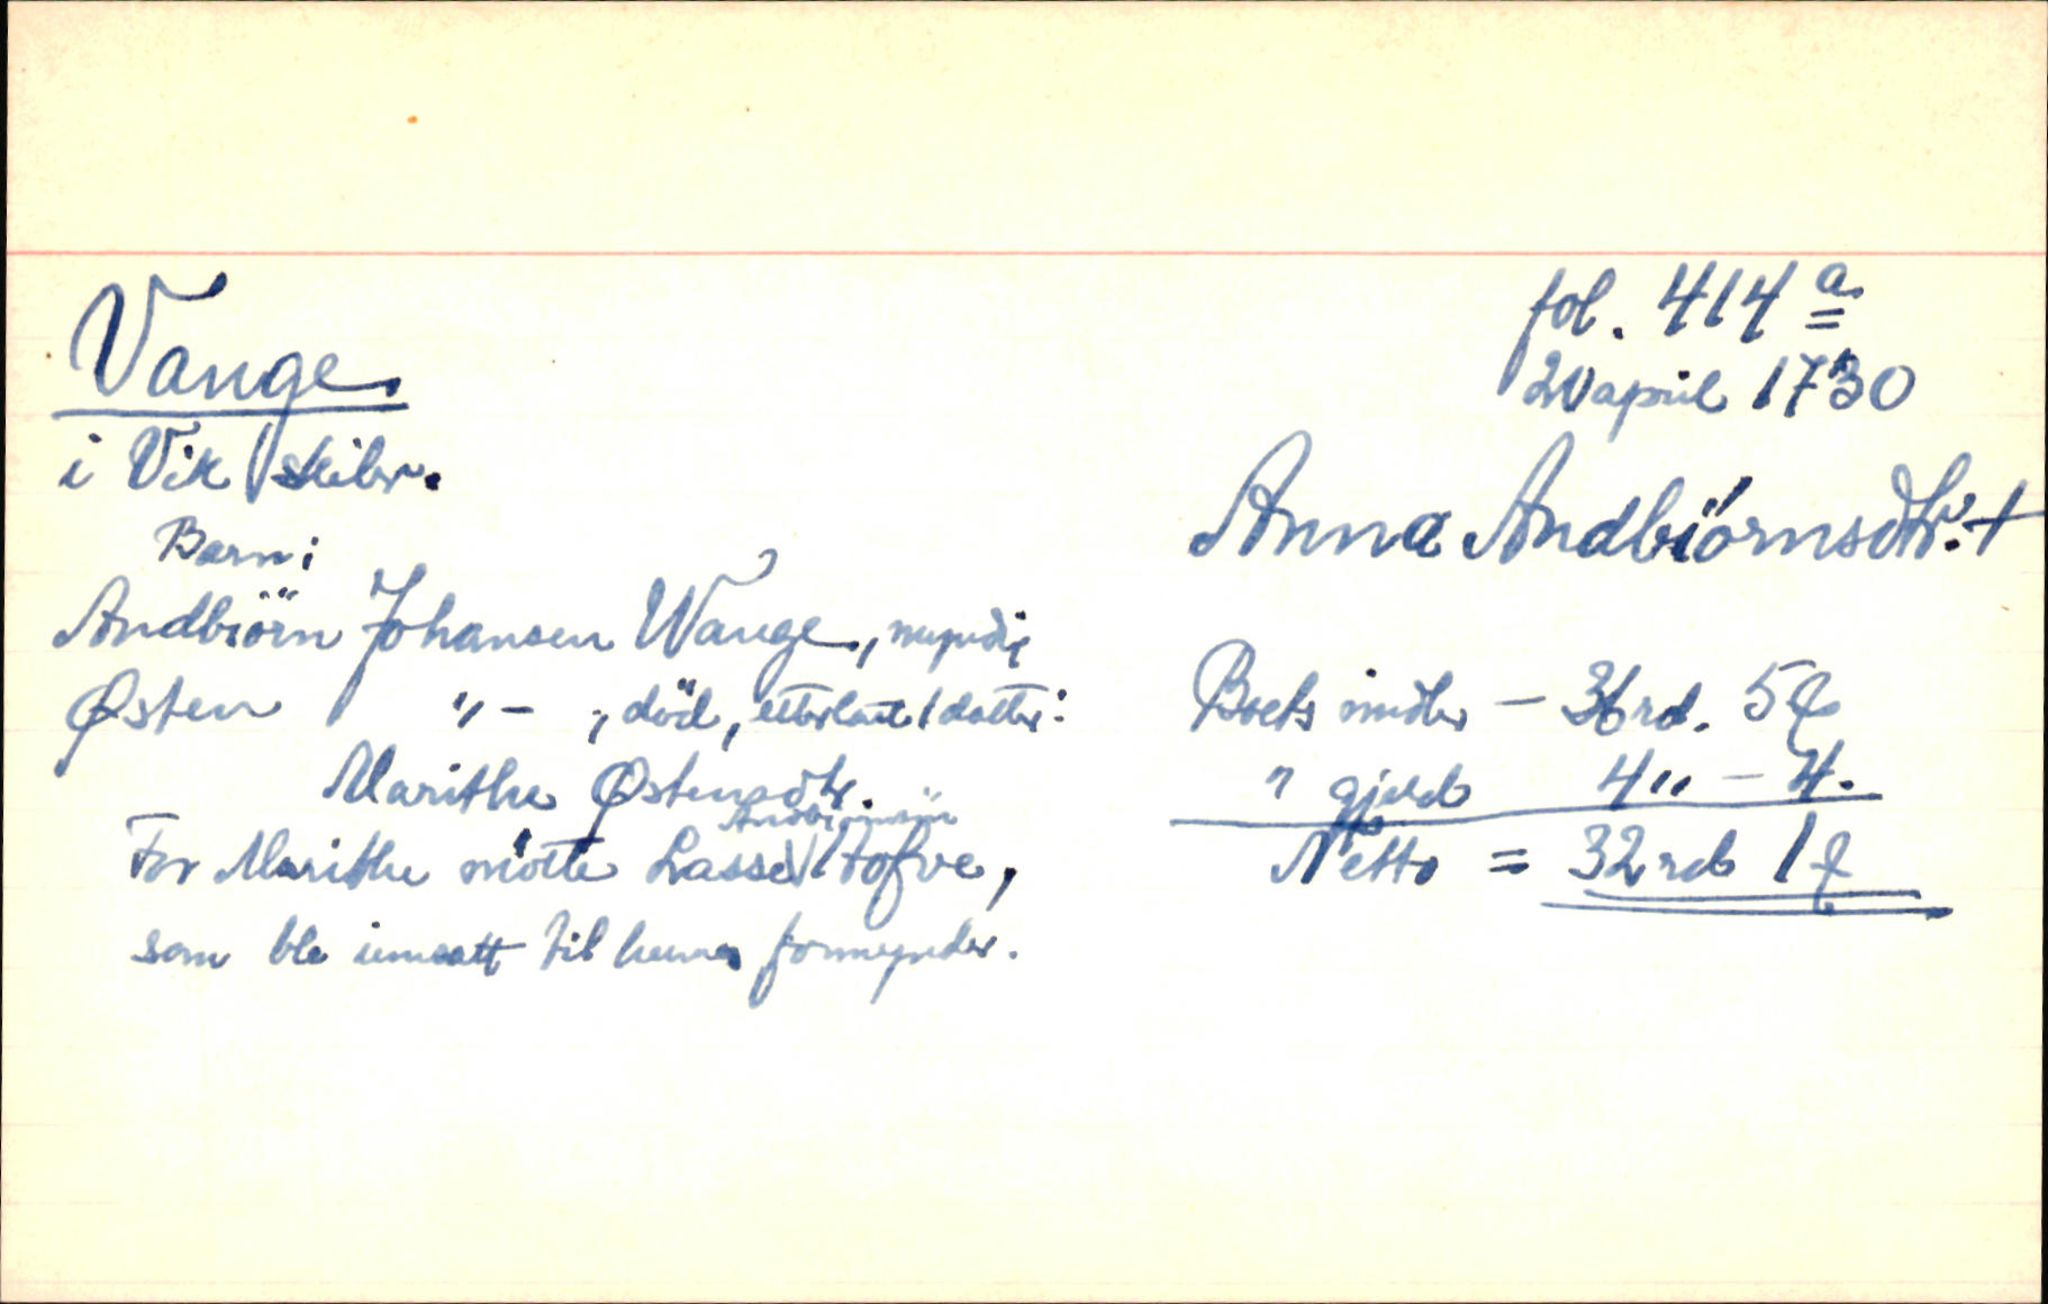 Vange
i Vik skibr.
Barn:
Andbiörn Johansen Wange, myndig
Østen " - , död, etterlatt 1 datter:
Marithe Østensdtr.
Andbiörnsön
For Marithe mötte Lasse Tofve,
som ble innsatt til hennes formynder.
fol. 414 a
20 april 1730
Anna Andbiörnsdtr. +
Boets midler - 36 rd. 5
" gjeld 4 " - 4.
Netto = 32 rd 1